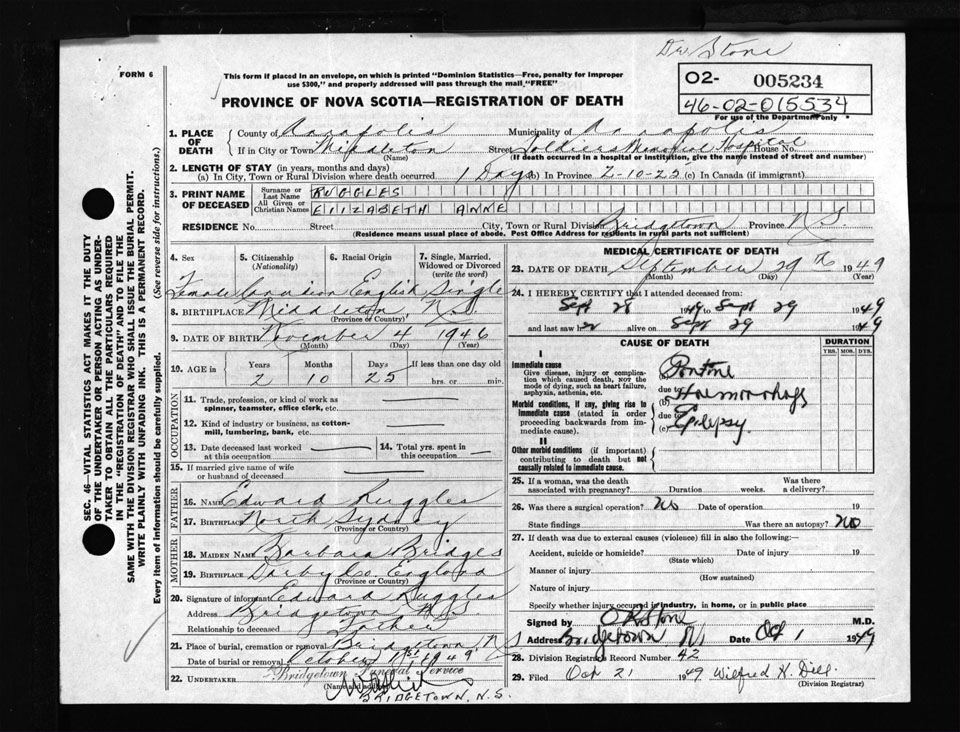 Dr Stone
FORM 6
This form if placed in an envelope, on which is printed "Dominion Statistics—Free, penalty for improper
use $300," and properly addressed will pass through the mail, "FREE"
O2- 005234
46-02-015534
For use of the Department only
PROVINCE OF NOVA SCOTIA—REGISTRATION OF DEATH
1. PLACE OF DEATH County of Annapolis Municipality of Annapolis
If in City or Town Middleton (Name) Street Soldiers Memorial Hospital House No.
(If death occurred in a hospital or institution, give the name instead of street and number)
2. LENGTH OF STAY (in years, months and days)
(a) In City, Town or Rural Division where death occurred 1 Day (b) In Province 2-10-25 (c) In Canada (if immigrant)
3. PRINT NAME OF DECEASED Surname or Last Name RUGGLES
All Given or Christian Names ElIZABETH ANNE
RESIDENCE No. Street City, Town or Rural Division Bridgetown Province N.S.
(Residence means usual place of abode. Post Office Address for residents in rural parts not sufficient)
4. Sex 5. Citizenship (Nationality) 6. Racial Origin 7. Single, Married, Widowed or Divorced (write the word)
Female Canadian English Single
8. BIRTHPLACE Middleton, N.S.
(Province or Country)
9. DATE OF BIRTH November 4 1946
(Month) (Day) (Year)
10. AGE in Years Months Days If less than one day old
2 10 25 hrs. or min.
OCCUPATION
11. Trade, profession, or kind of work as
spinner, teamster, office clerk, etc.
12. Kind of industry or business, as cotton-
mill, lumbering, bank, etc.
13. Date deceased last worked at this occupation 14. Total yrs. spent in this occupation
15. If married give name of wife
or husband of deceased
FATHER
16. NAME Edward Ruggles
17. BIRTHPLACE North Sydney
(Province or Country)
MOTHER
18. MAIDEN NAME Barbara Bridges
19. BIRTHPLACE Darby Co. England
(Province or Country)
20. Signature of informant Edward Ruggles
Address Bridgetown N.S.
Relationship to deceased Father
21. Place of burial, cremation or removal Bridgetown, N S
Date of burial or removal October 1st 1949
22. UNDERTAKER Bridgetown Funeral Service
(Name and
BRIDGETOWN, N.S.
MEDICAL CERTIFICATE OF DEATH
23. DATE OF DEATH September 29th 1949
(Month) (Day) (Year)
24. I HEREBY CERTIFY that I attended deceased from
Sept 28 1949 to Sept 29 1949
and last saw alive on Sept 29 1949
CAUSE OF DEATH DURATION
YRS. MOS. DYS.
I
Immediate cause
Give disease, injury or complication which caused death, NOT the mode of dying, such as heart failure, asphyxia, asthenia, etc.
(a) Pontine
due to Haemorrhage
Morbid conditions, if any, giving rise to immediate cause (stated in order proceeding backwards from immediate cause).
(b)
due to
(c) Epilepsy.
II
Other morbid conditions (if important) contributing to death but not causally related to immediate cause.
25. If a woman, was the death associated with pregnancy? Duration weeks. Was there a delivery?
26. Was there a surgical operation? No Date of operation 19
State findings Was there an autopsy? No
27. If death was due to external causes (violence) fill in also the following:
Accident, suicide or homicide? Date of injury 19
(State which)
Manner of injury
(How sustained)
Nature of injury
Specify whether injury occurred in industry, in home, or in public place
Signed by Stone M.D.
Address Bridgetown NS Date Oct 1 1949
28. Division Registrar's Record Number 42
29. Filed Oct 21 1949 Wilfred K. Dill
(Division Registrar)
SEC. 46—VITAL STATISTICS ACT MAKES IT THE DUTY
OF THE UNDERTAKER OR PERSON ACTING AS UNDER-
TAKER TO OBTAIN ALL THE PARTICULARS REQUIRED
IN THE "REGISTRATION OF DEATH" AND TO FILE THE
SAME WITH THE DIVISION REGISTRAR WHO SHALL ISSUE THE BURIAL PERMIT.
WRITE PLAINLY WITH UNFADING INK. THIS IS A PERMANENT RECORD.
Every item of information should be carefully supplied. (See reverse side for instructions.)